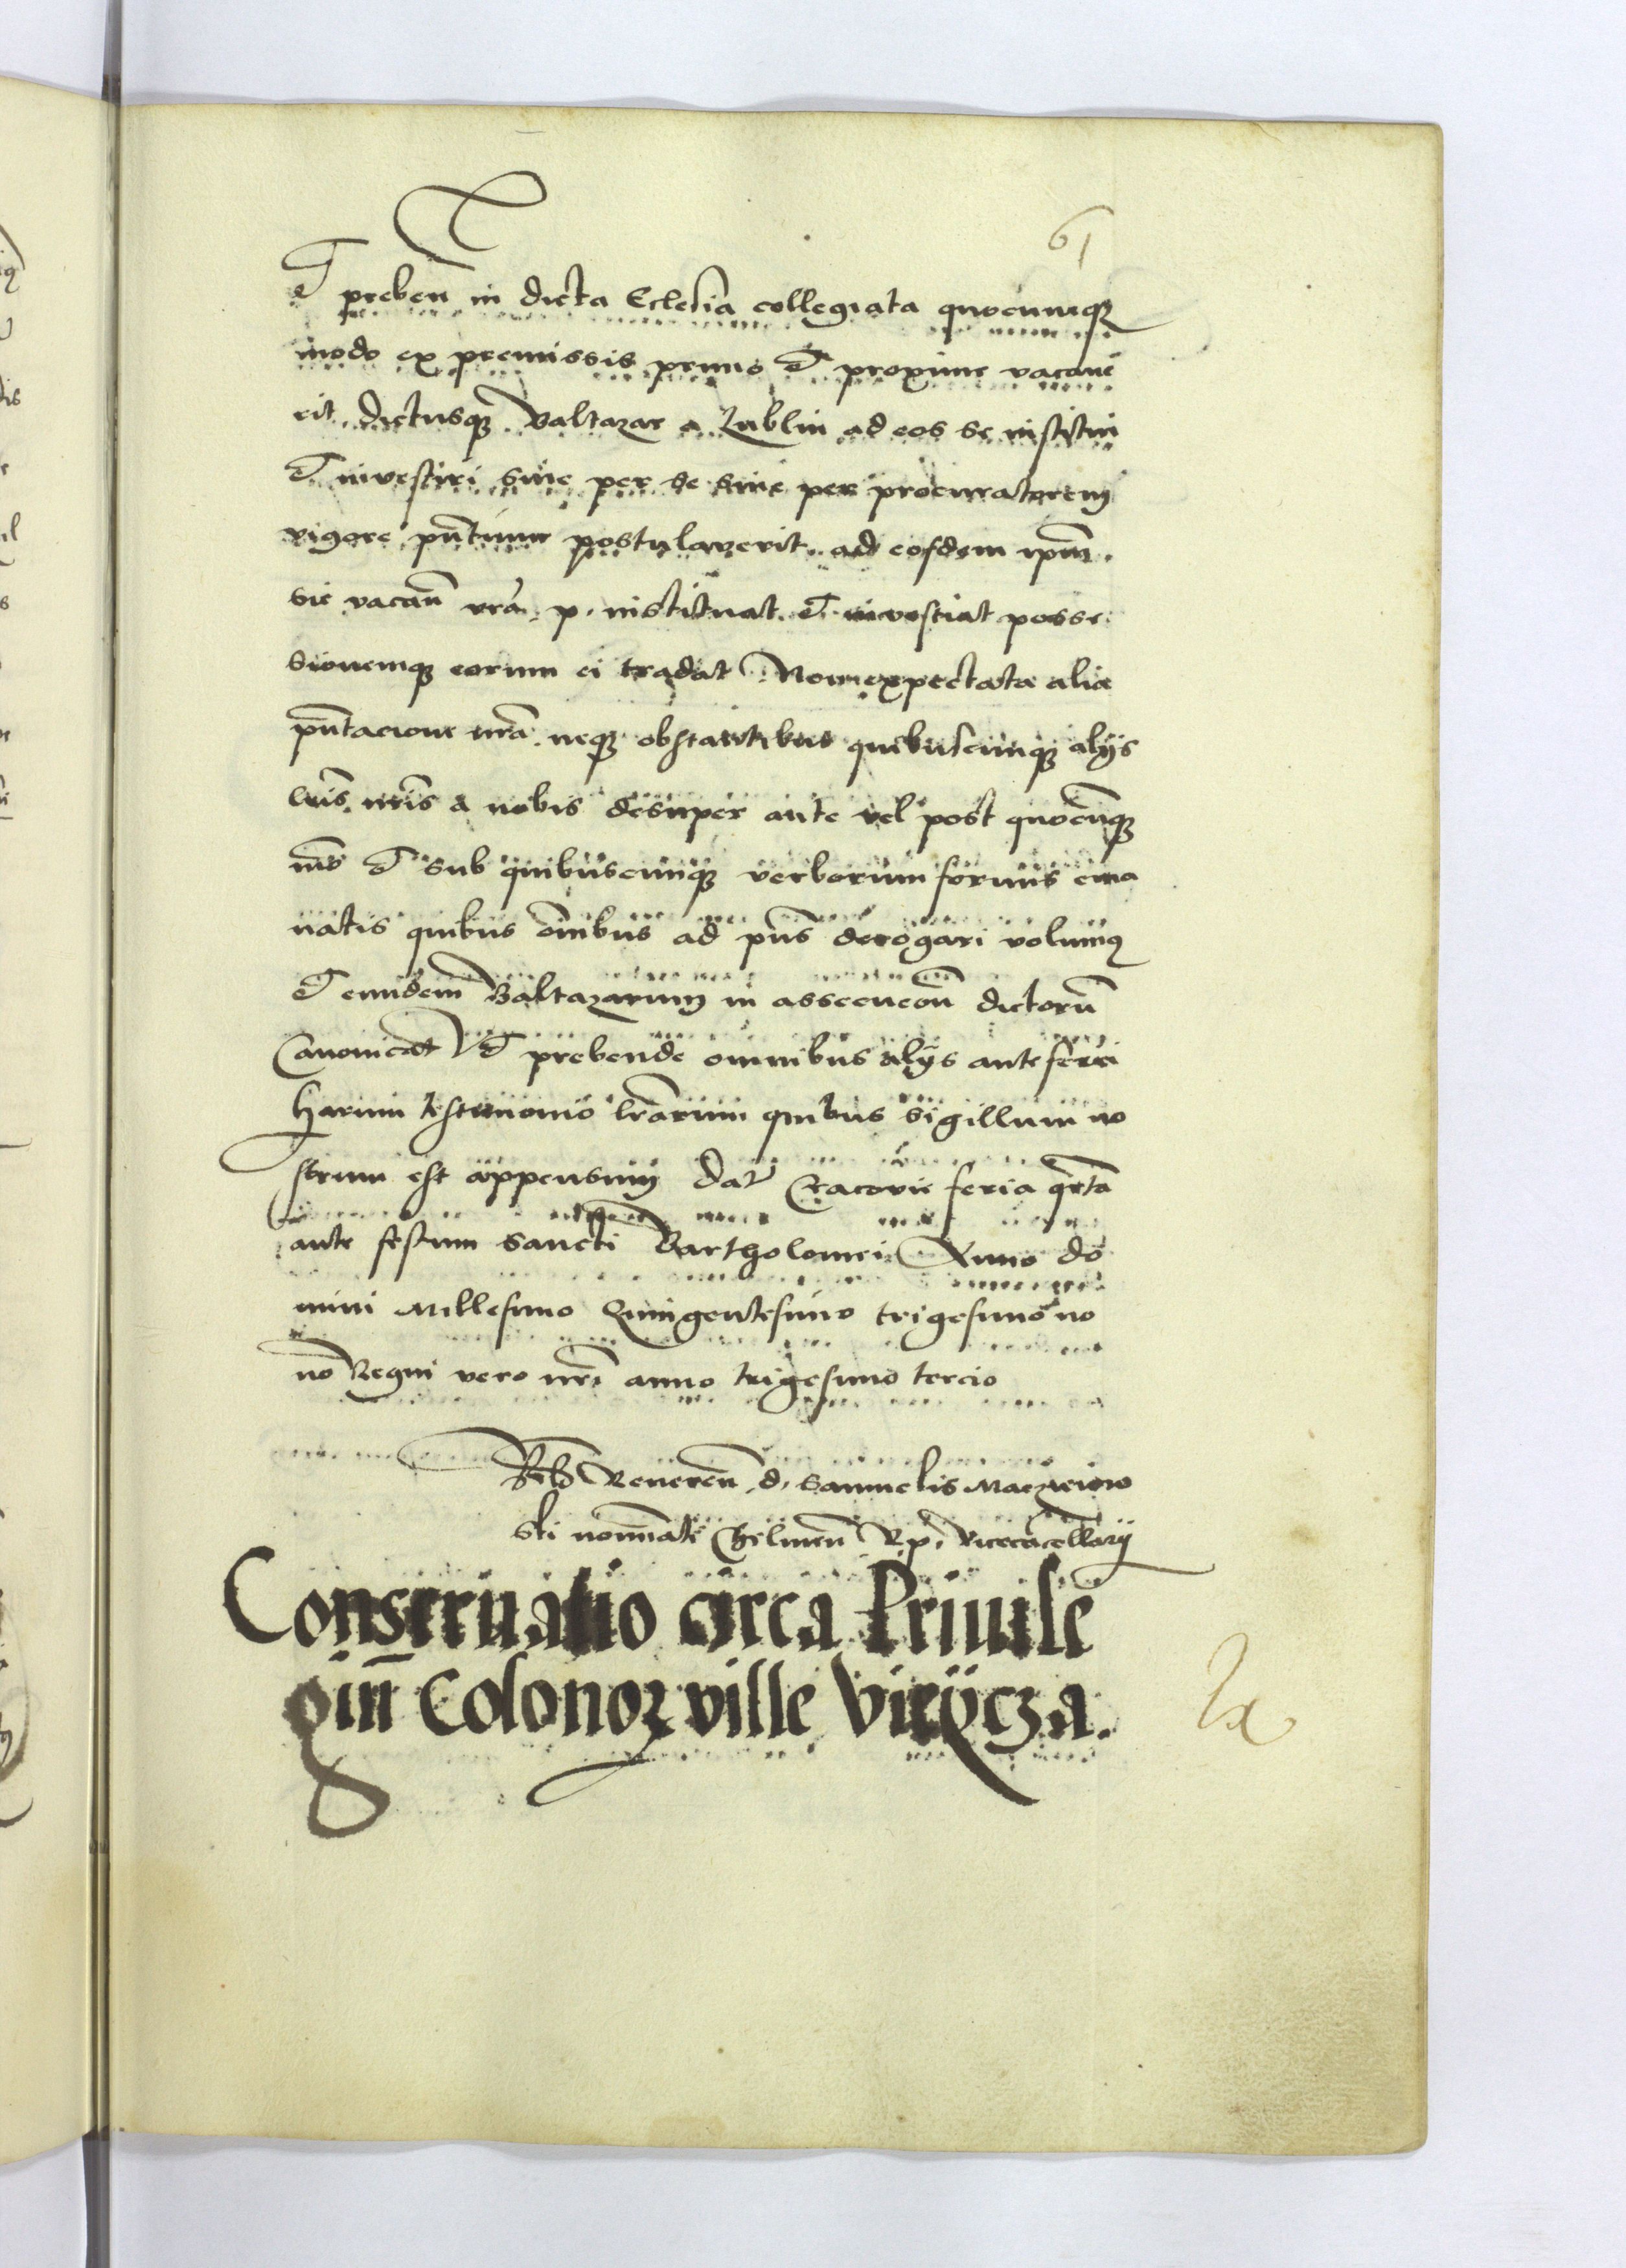 61
et preben̄ in dicta Eclesia collegiata quocumq̨
modo ex premissis primo et proxime vacaue
rit dictusq̨ Baltazar a Lublin ad eos se institui
et inuestiri siue per se siue per procuratorem
vigore pn̄tium postulauerit ad eosdem ipm̄
sic vacan̄ vr̄a p. instituat et inuestiat posse
sionemq̨ eorum ei tradat Non expectata alia
pn̄tacione nr̄a neq̨ obstantibus quibuscumq̨ alÿs
lr̄is nr̄is a nobis desuper ante vel post quocūq̨
mō et sub quibuscumq̨ verborum formis ema
natis quibus om̄ibus ad pn̄s derogari volumus
et eundem Baltazarum in assecucōn̄ dictorū
Canonicat et prebende omnibus alÿs anteferri
harum testimonio lr̄arum quibus sigillum no
strum est appensum Dat Cracovie feria qrta
ante festum sancti Bartholomei Anno do
mini Millesimo Quingentesimo trigesimo no
no Regni vero nr̄i anno trigesimo tercio
Relō Reueren̄ d. Samuelis Maczieiow
ski nominati Chelmen̄ R. p. Vicecācellarÿ
Conseruatio circa Priuile
giū Colonoꝝ ville Virÿcza.